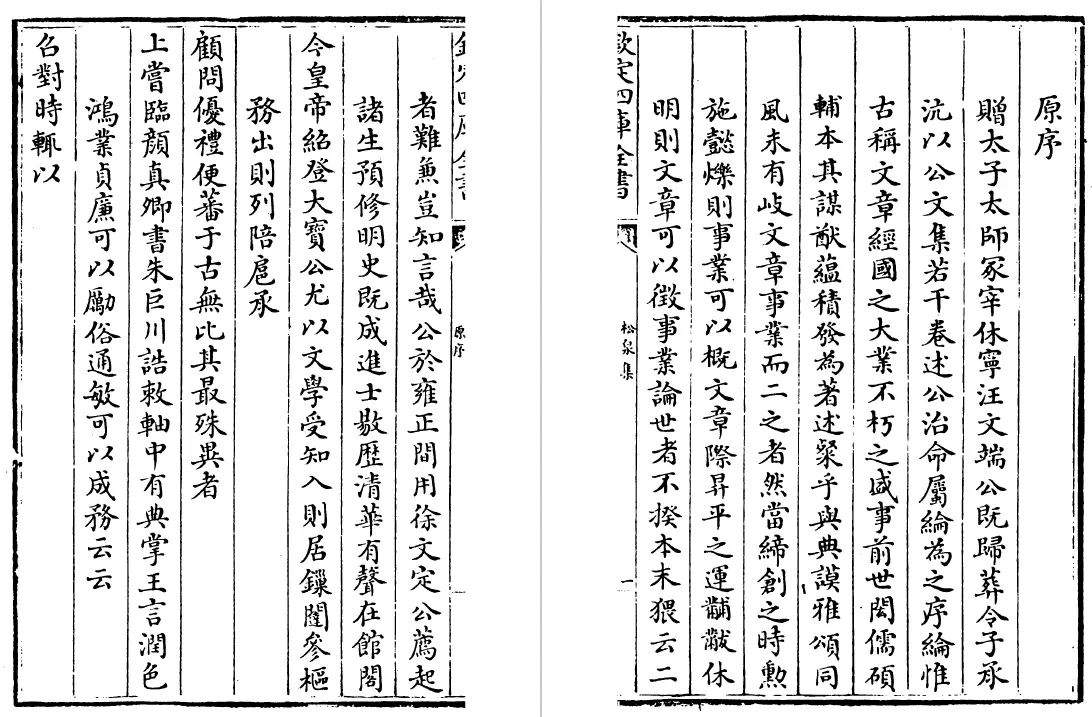 原序
贈太子太師冢宰休寧汪文端公既歸葬令子承
沆以公文集若干卷述公治命屬綸為之序綸惟
古稱文章經國之大業不朽之盛事前世閎儒碩
輔本其謀猷蘊積發為著述粲乎與典謨雅頌同
風未有岐文章事業而二之者然當締創之時勲
施懿爍則事業可以概文章際昇平之運黼黻休
明則文章可以徴事業論世者不揆本末猥云二
欽定四庫全書
松泉集
原序
一
者難兼豈知言哉公於雍正間用徐文定公薦起
諸生預修明史既成進士敭歴清華有聲在館閣
今皇帝紹登大寶公尤以文學受知入則居鏁闥參樞
務出則列陪扈承
顧問優禮便蕃于古無比其最殊異者
上嘗臨顔真卿書朱巨川誥敕軸中有典掌王言潤色
鴻業貞廉可以勵俗通敏可以成務云云
召對時輒以